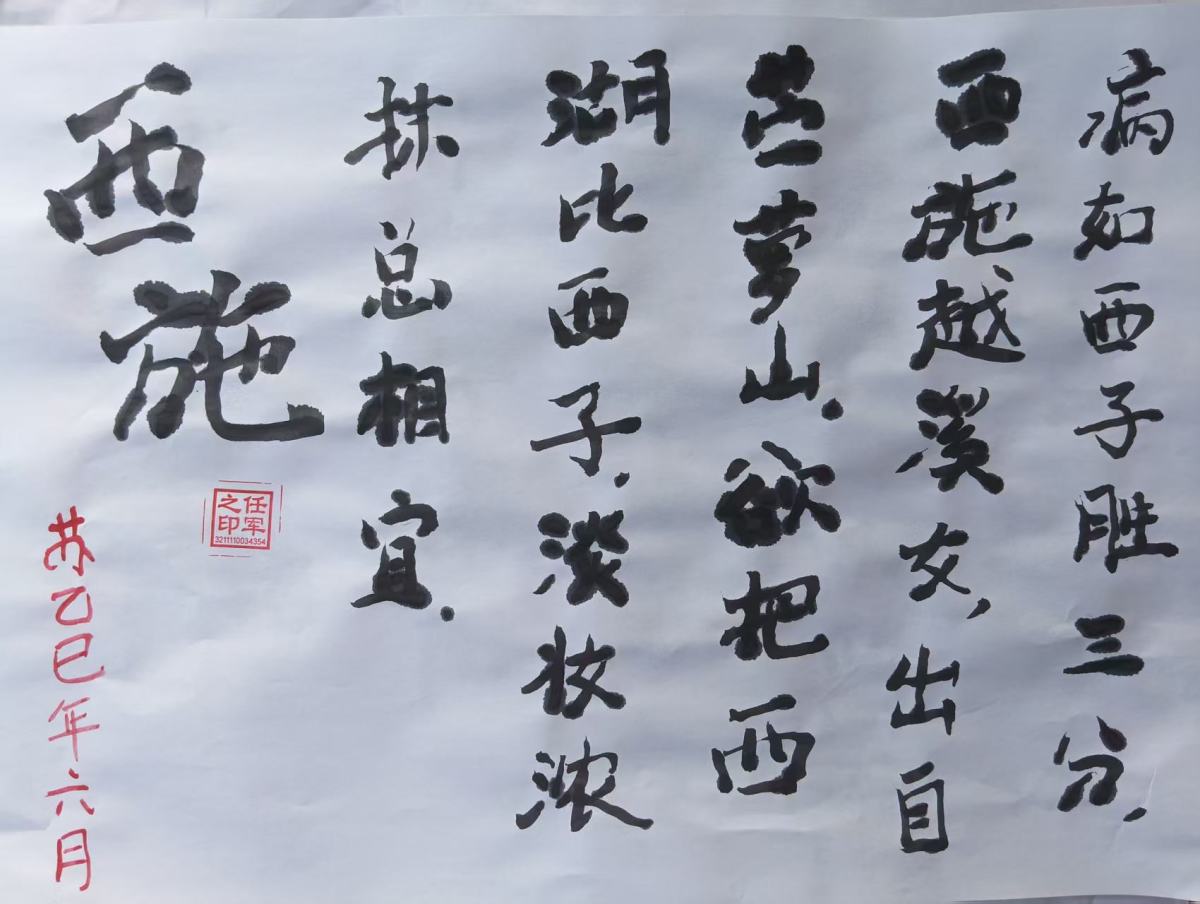 病如西子胜三分，
西施越溪女，出自
苎萝山.欲把西
湖比西子.淡妆浓
抹总相宜.
西施
任军之印
3211110034354
苏乙巳年六月